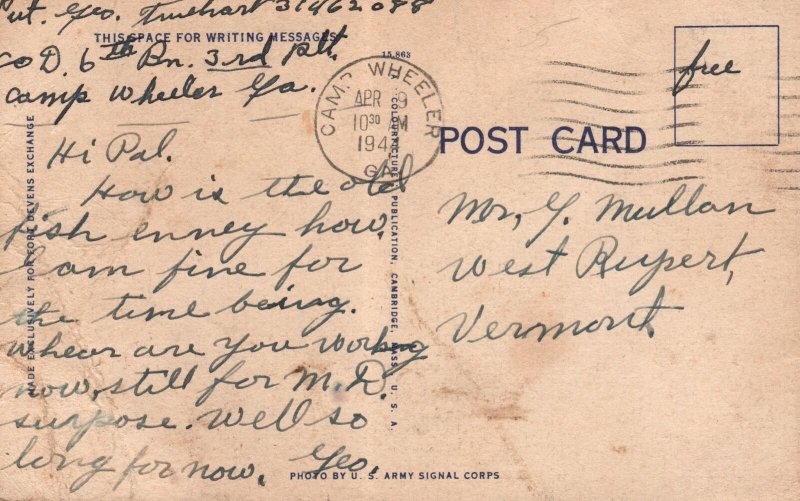 Pvt. Geo. Truehart 31462088
THIS SPACE FOR WRITING MESSAGES
Co D. 6th Bn. 3rd Plt.
Camp Wheeler Ga.
Hi Pal.
How is the old
fish enney how.
I am fine for
the time being.
whear are you working
now, still for M.D.
surpose. Well so
long for now. Geo.
MADE EXCLUSIVELY FOR FORT DEVENS EXCHANGE
COLOURPICTURE PUBLICATION, CAMBRIDGE, MASS., U. S. A.
PHOTO BY U. S. ARMY SIGNAL CORPS
15,863
CAMP WHEELER
APR 9
10 30 AM
194
GA.
POST CARD
free
Mr. Y. Mullan
West Rupert,
Vermont.